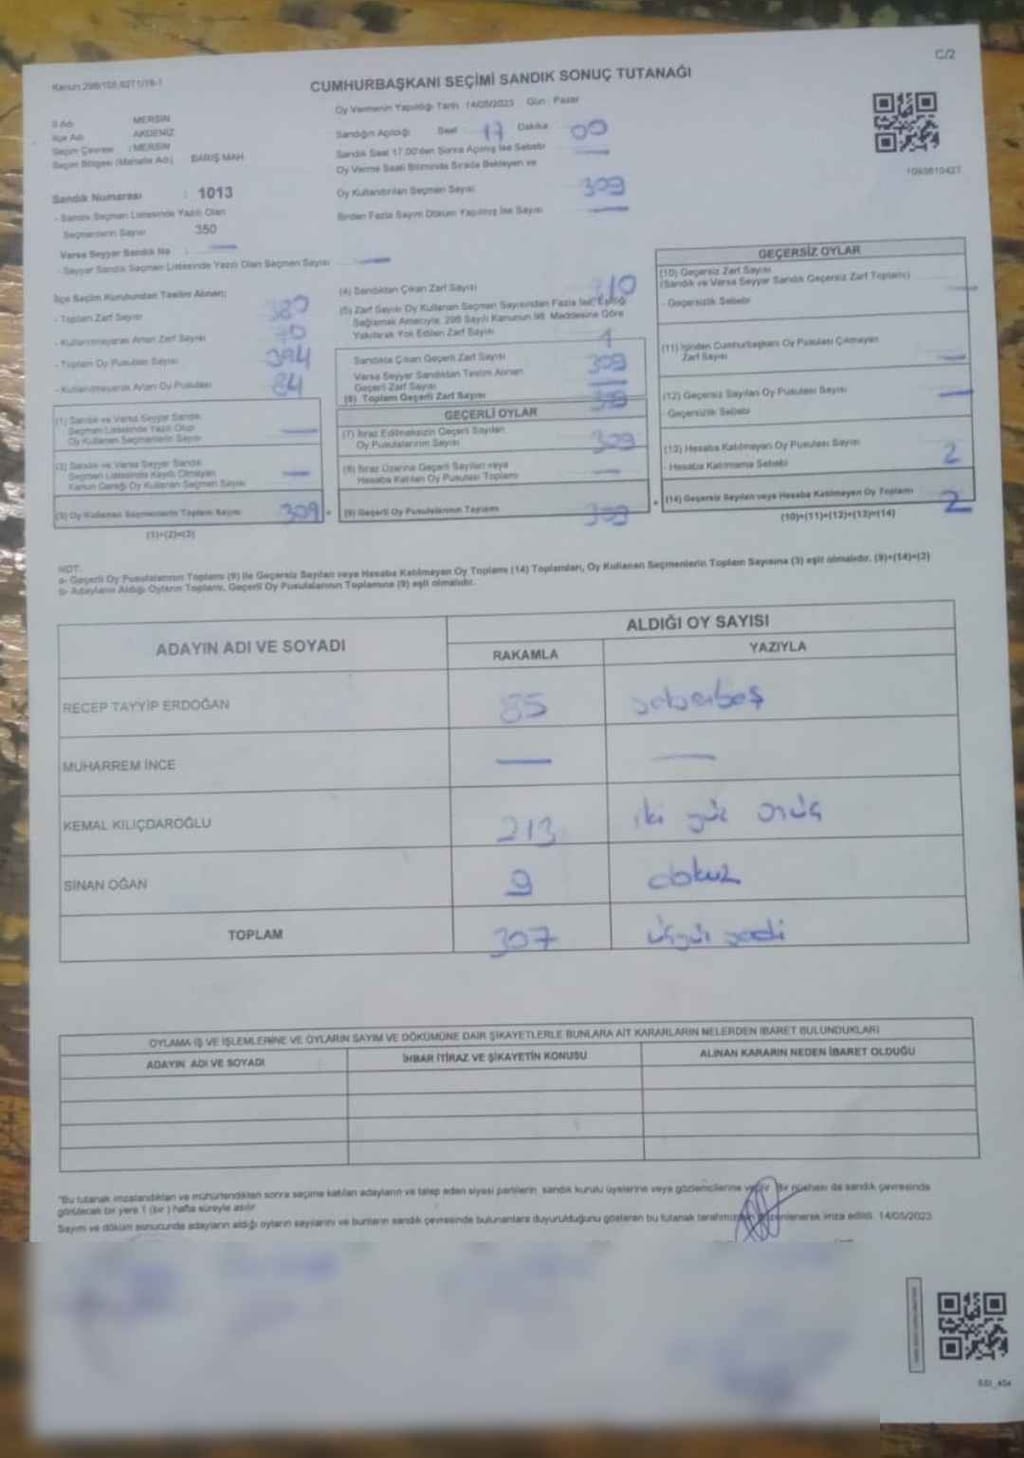 Kanun 298/105,6271/19-1
C/2
CUMHURBAŞKANI SEÇİMİ SANDIK SONUÇ TUTANAĞI
İl Adı : MERSİN
İlçe Adı : AKDENİZ
Seçim Çevresi : MERSİN
Seçim Bölgesi (Mahalle Adı) : BARIŞ MAH.
Sandık Numarası : 1013
- Sandık Seçmen Listesinde Yazılı Olan
Seçmenlerin Sayısı 350
Varsa Seyyar Sandık No : —
- Seyyar Sandık Seçmen Listesinde Yazılı Olan Seçmen Sayısı —
Oy Vermenin Yapıldığı Tarih : 14/05/2023 Gün : Pazar
Sandığın Açıldığı Saat 17 Dakika 00
Sandık Saat 17.00'den Sonra Açılmış İse Sebebi —
Oy Verme Saati Bitiminde Sırada Bekleyen ve
Oy Kullandırılan Seçmen Sayısı 309
Birden Fazla Sayım Döküm Yapılmış İse Sayısı —
1093610427
İlçe Seçim Kurulundan Teslim Alınan;
- Toplam Zarf Sayısı 380
- Kullanılmayarak Artan Zarf Sayısı 70
- Toplam Oy Pusulası Sayısı 394
- Kullanılmayarak Artan Oy Pusulası 84
(1) Sandık ve Varsa Seyyar Sandık
Seçmen Listesinde Yazılı Olup
Oy Kullanan Seçmenlerin Sayısı —
(2) Sandık ve Varsa Seyyar Sandık
Seçmen Listesinde Kayıtlı Olmayan
Kanun Gereği Oy Kullanan Seçmen Sayısı —
(3) Oy Kullanan Seçmenlerin Toplam Sayısı 309
(1)+(2)=(3)
(4) Sandıktan Çıkan Zarf Sayısı 310
(5) Zarf Sayısı Oy Kullanan Seçmen Sayısından Fazla İse, Eşitliği
Sağlamak Amacıyla, 298 Sayılı Kanunun 98. Maddesine Göre
Yakılarak Yok Edilen Zarf Sayısı 1
Sandıkta Çıkan Geçerli Zarf Sayısı 309
Varsa Seyyar Sandıktan Teslim Alınan
Geçerli Zarf Sayısı —
(6) Toplam Geçerli Zarf Sayısı 309
GEÇERLİ OYLAR
(7) İtiraz Edilmeksizin Geçerli Sayılan
Oy Pusulalarının Sayısı 309
(8) İtiraz Üzerine Geçerli Sayılan veya
Hesaba Katılan Oy Pusulası Toplamı —
(9) Geçerli Oy Pusulalarının Toplamı 309
GEÇERSİZ OYLAR
(10) Geçersiz Zarf Sayısı
(Sandık ve Varsa Seyyar Sandık Geçersiz Zarf Toplamı) —
- Geçersizlik Sebebi
(11) İçinden Cumhurbaşkanı Oy Pusulası Çıkmayan
Zarf Sayısı —
(12) Geçersiz Sayılan Oy Pusulası Sayısı —
- Geçersizlik Sebebi
(13) Hesaba Katılmayan Oy Pusulası Sayısı 2
- Hesaba Katılmama Sebebi
(14) Geçersiz Sayılan veya Hesaba Katılmayan Oy Toplamı 2
(10)+(11)+(12)+(13)=(14)
NOT:
a- Geçerli Oy Pusulalarının Toplamı (9) ile Geçersiz Sayılan veya Hesaba Katılmayan Oy Toplamı (14) Toplamları, Oy Kullanan Seçmenlerin Toplam Sayısına (3) eşit olmalıdır. (9)+(14)=(3)
b- Adayların Aldığı Oyların Toplamı, Geçerli Oy Pusulalarının Toplamına (9) eşit olmalıdır.
ADAYIN ADI VE SOYADI
ALDIĞI OY SAYISI
RAKAMLA YAZIYLA
RECEP TAYYİP ERDOĞAN 85 seksenbeş
MUHARREM İNCE — —
KEMAL KILIÇDAROĞLU 213 iki yüz onüç
SİNAN OĞAN 9 dokuz
TOPLAM 307 üçyüz yedi
OYLAMA İŞ VE İŞLEMLERİNE VE OYLARIN SAYIM VE DÖKÜMÜNE DAİR ŞİKAYETLERLE BUNLARA AİT KARARLARIN NELERDEN İBARET BULUNDUKLARI
ADAYIN ADI VE SOYADI İHBAR İTİRAZ VE ŞİKAYETİN KONUSU ALINAN KARARIN NEDEN İBARET OLDUĞU
"Bu tutanak imzalandıktan ve mühürlendikten sonra seçime katılan adayların ve talep eden siyasi partilerin sandık kurulu üyelerine veya gözlemcilerine verilir. Bir nüshası da sandık çevresinde
görülecek bir yere 1 (bir) hafta süreyle asılır.
Sayım ve döküm sonucunda adayların aldığı oyların sayılarını ve bunların sandık çevresinde bulunanlara duyurulduğunu gösteren bu tutanak tarafımızdan düzenlenerek imza edildi. 14/05/2023